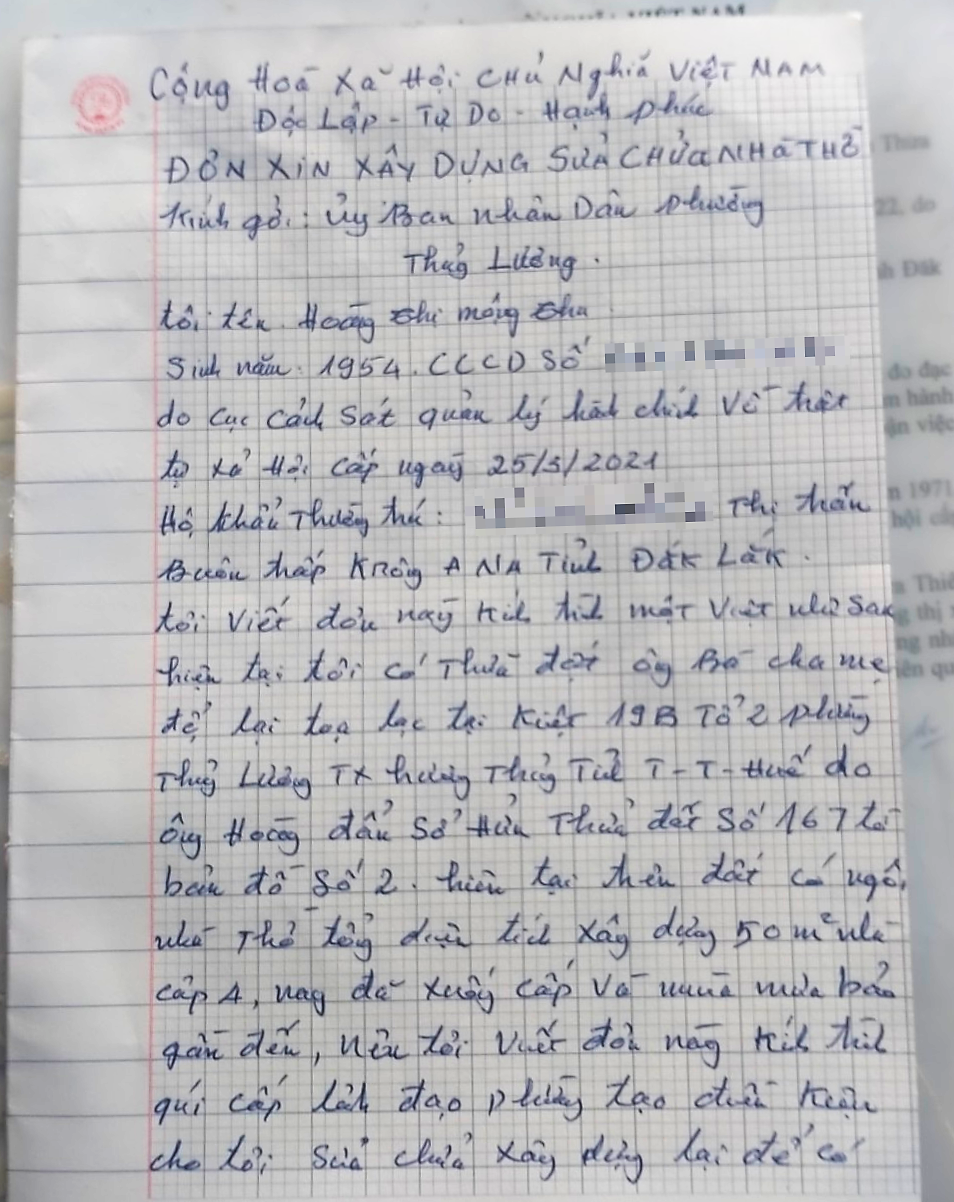 Cộng Hoà Xã Hội CHủ Nghĩa Việt NAM
Độc Lập - Tự Do - Hạnh phúc
ĐƠN XiN XÂY DỰNG SỬA CHỬA NHÀ THỜ
Kính gởi: Ủy Ban nhân Dân phường
Thuỷ Lương.
tôi tên Hoàng Thị mộng Thu
Sinh năm 1954. CCCD Số
do cục cảnh Sát quản lý hành chính Về trật
tự xả Hội cấp ngày 25/5/2021
Hộ khẩu Thường trú: Thị trấn
Buôn trấp KRông A NA Tỉnh ĐắK LắK.
tôi Viết đơn này Kính trình một Việt như Sau
hiện tại tôi có Thửa đất ông Bà cha mẹ
để lại toạ lạc tại Kiệt 19B Tổ 2 phường
Thuỷ Lương TX hương Thủy Tỉnh T-T-Huế do
ông Hoàng đẩu Sở Hửu Thửa đất Số 167 tờ
bản đồ Số 2. hiện tại trên đất có ngôi
nhà Thờ tổng diện tích xây dựng 50 m² nhà
cấp 4, nay đã xuống cấp Và mùa mưa bảo
gần đến, nên tôi Viết đơn này Kính trình
quí cấp lảnh đạo phường tạo điều Kiện
cho tôi Sửa chửa xây dựng lại để có